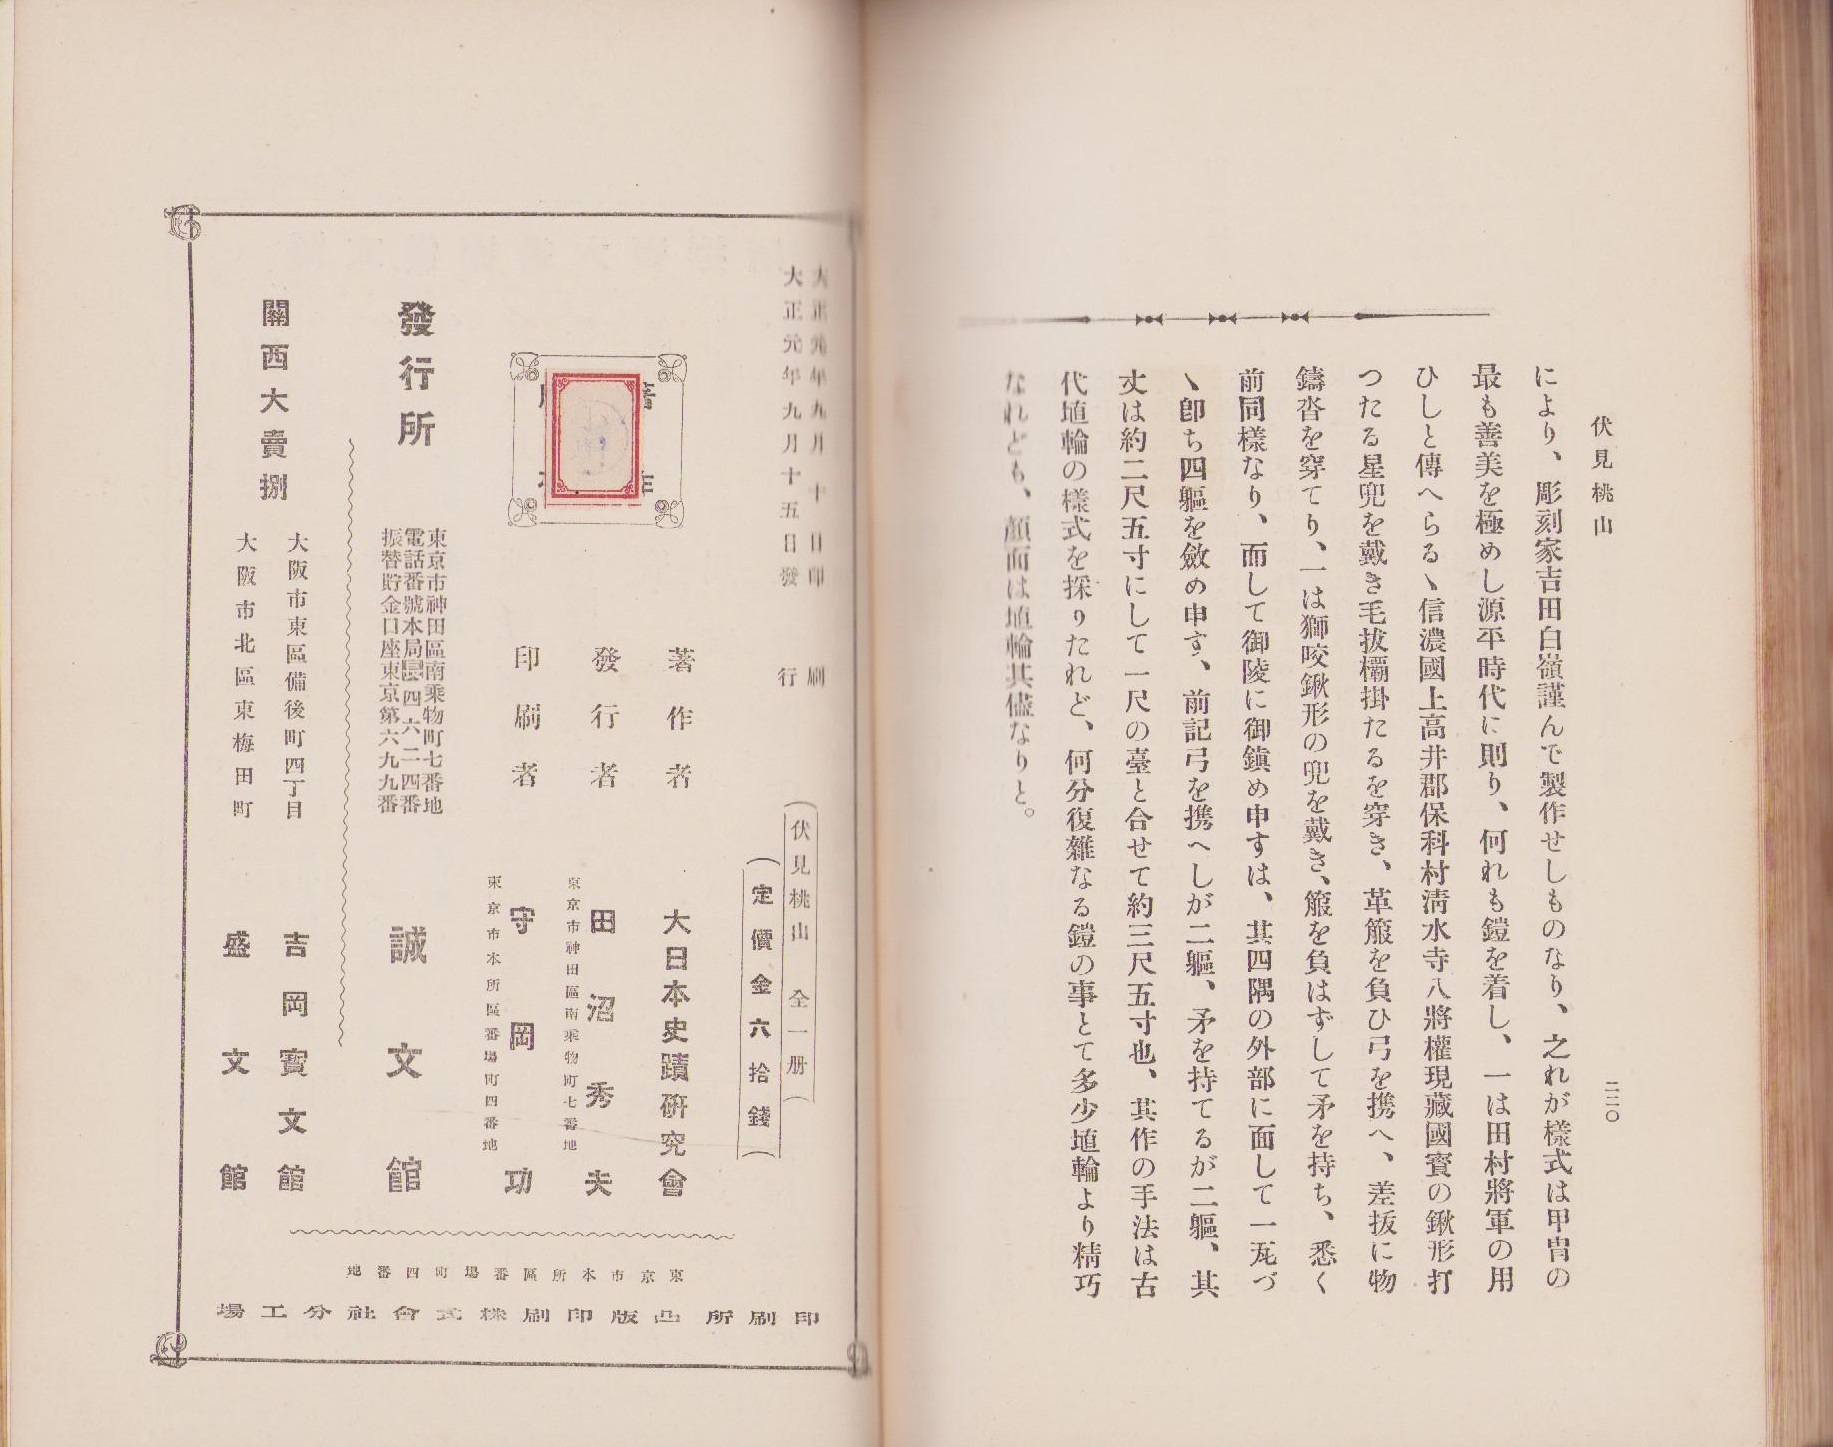 伏見桃山
二二〇
により、彫刻家吉田白嶺謹んで製作せしものなり、之れが樣式は甲冑の
最も善美を極めし源平時代に則り、何れも鎧を着し、一は田村將軍の用
ひしと傳へらるゝ信濃國上高井郡保科村淸水寺八將權現藏國寶の鍬形打
つたる星兜を戴き毛抜檷掛たるを穿き、革箙を負ひ弓を携へ、差抜に物
鑄沓を穿てり、一は獅咬鍬形の兜を戴き、箙を負はずして矛を持ち、悉く
前同樣なり、而して御陵に御鎭め申すは、其四隅の外部に面して一瓦づ
ゝ卽ち四軀を斂め申す、前記弓を携へしが二軀、矛を持てるが二軀、其
丈は約二尺五寸にして一尺の臺と合せて約三尺五寸也、其作の手法は古
代埴輪の樣式を採りたれど、何分復雜なる鎧の事とて多少埴輪より精巧
なれども、顏面は埴輪其儘なりと。
大正元年九月十日印刷
大正元年九月十五日發行
(伏見桃山 全一册)
(定價金六拾錢)
著作者 大日本史蹟硏究會
東京市神田區南乘物町七番地
發行者 田沼秀夫
東京市本所區番場町四番地
印刷者 守岡功
發行所
東京市神田區南乘物町七番地
電話番號本局長四六二四番
振替貯金口座東京第六九九番
誠文館
關西大賣捌
大阪市東區備後町四丁目 吉岡寶文館
大阪市北區東梅田町 盛文館
東京市本所區番場町四番地
印刷所 凸版印刷株式會社分工場